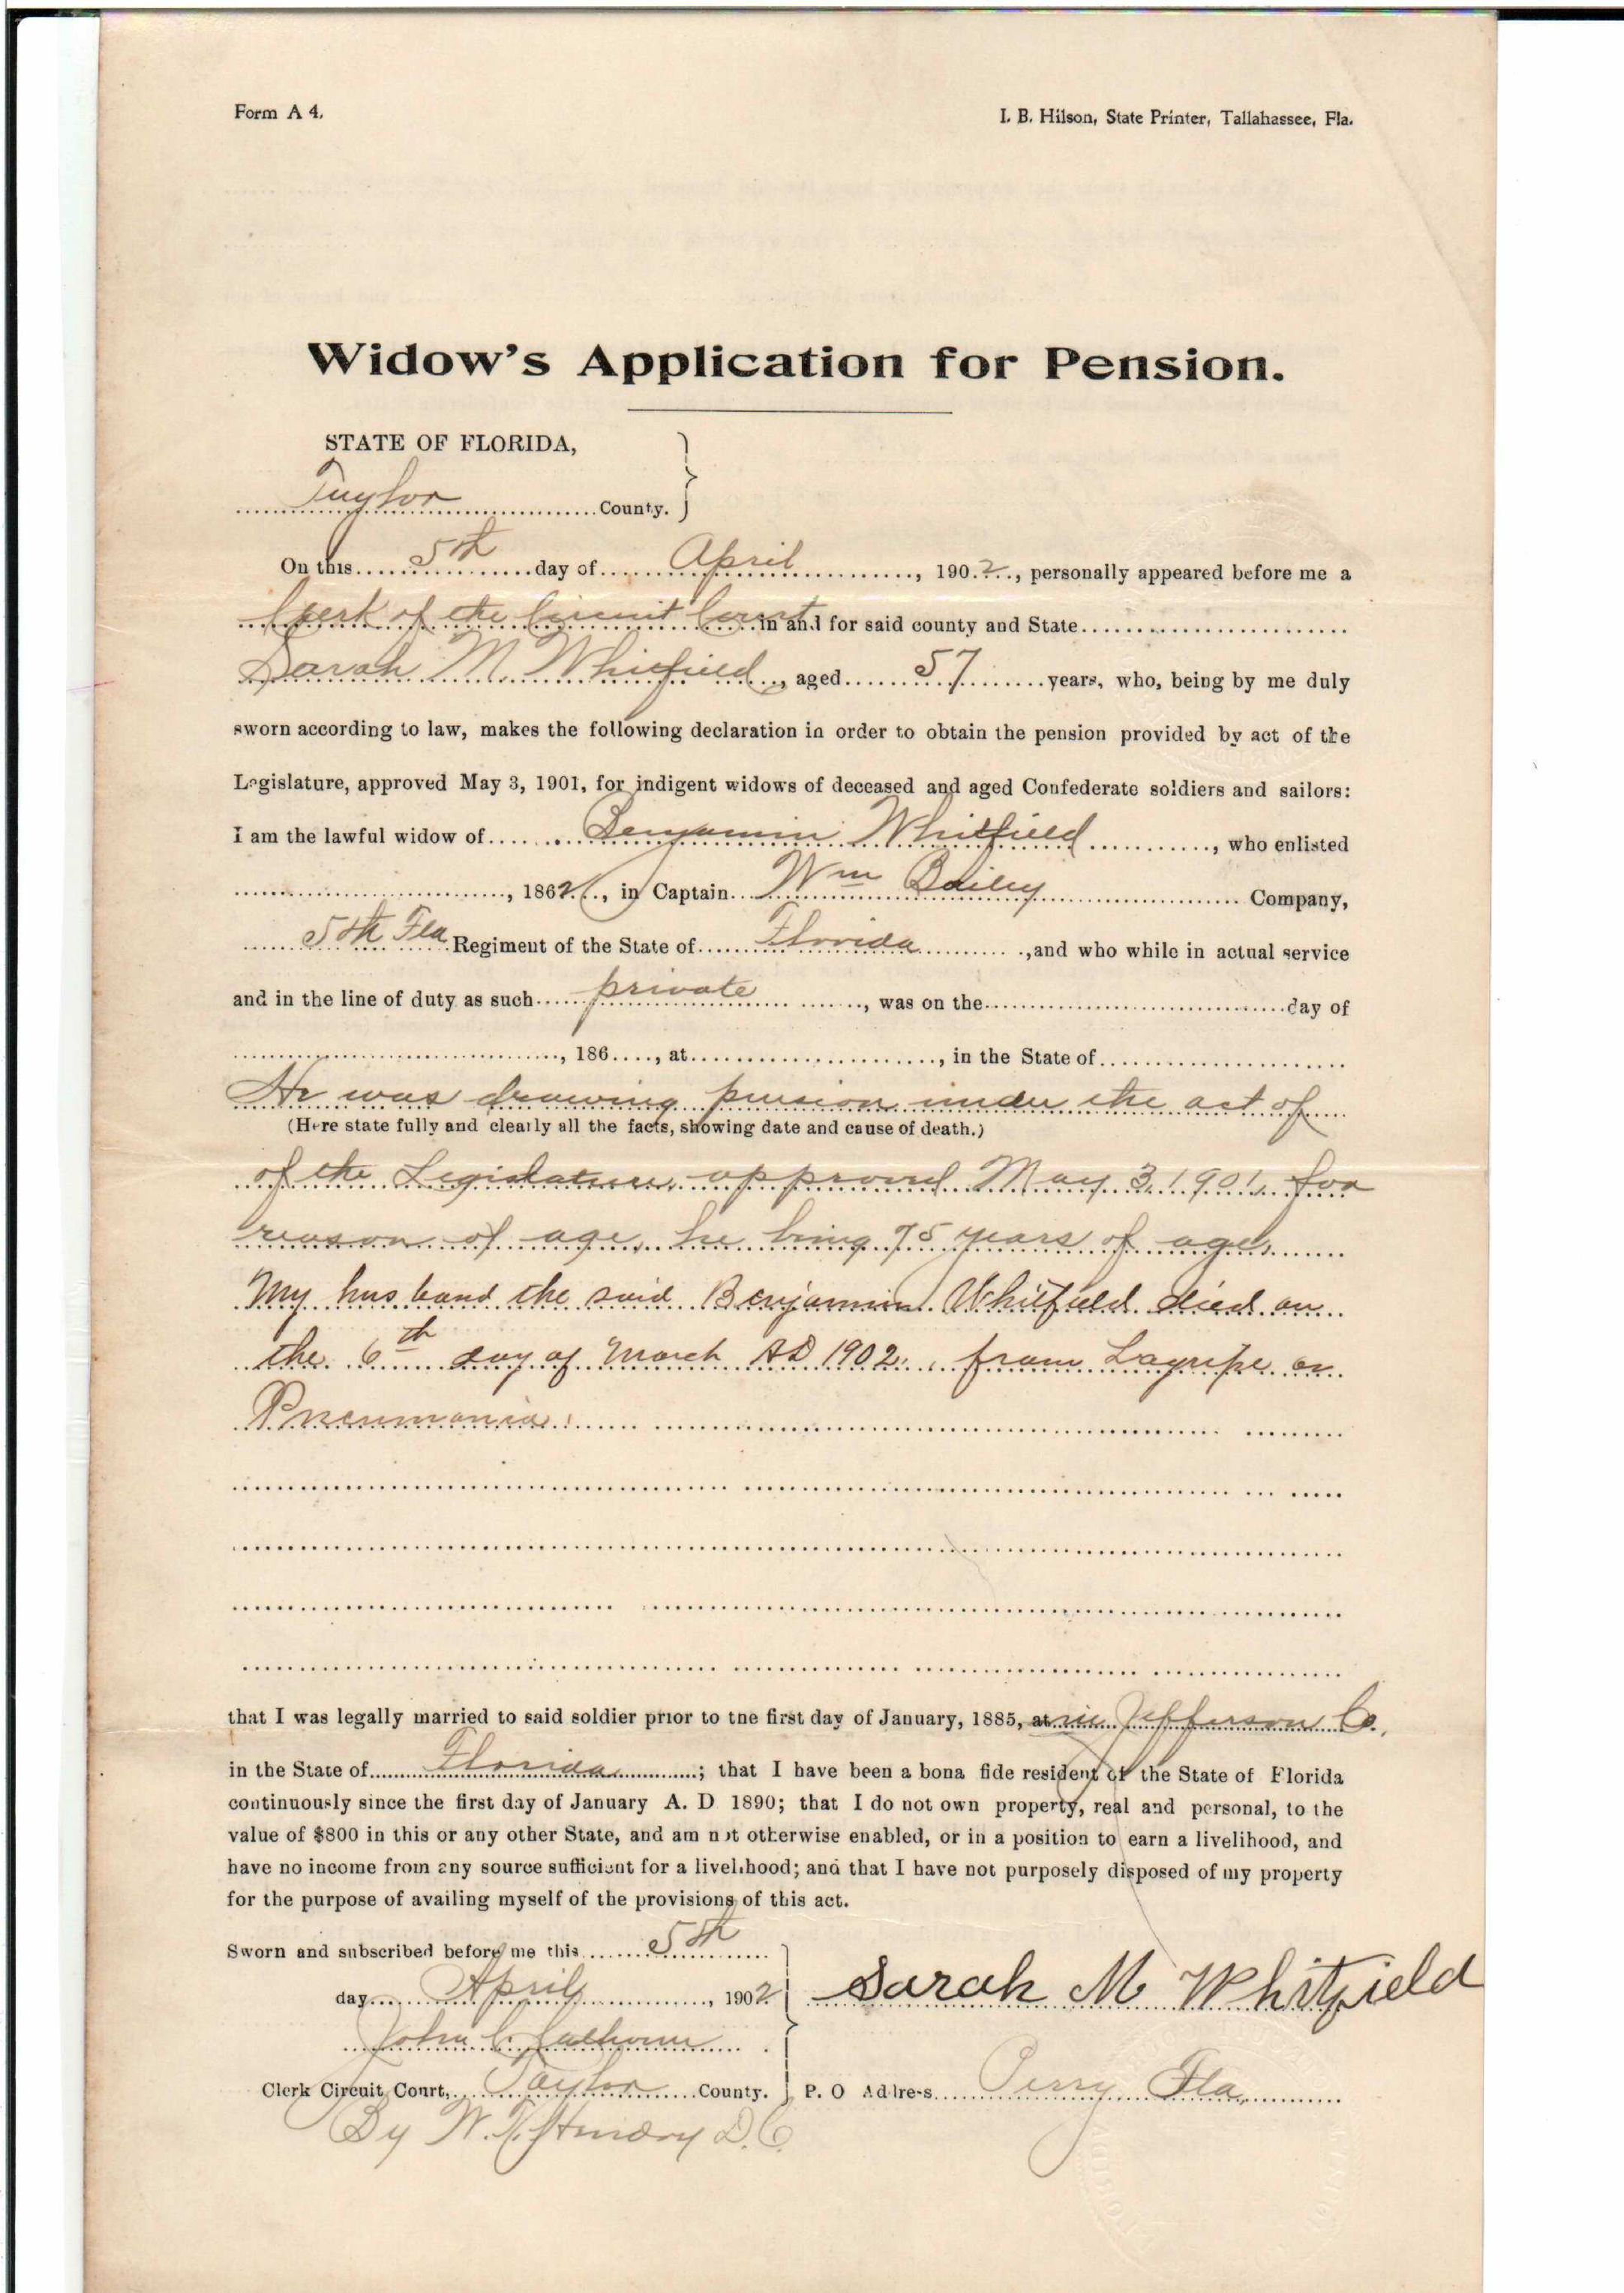 Form A 4.
I. B. Hilson, State Printer, Tallahassee, Fla.
Widow's Application for Pension.
STATE OF FLORIDA,
Taylor County.
On this 5th day of April, 1902, personally appeared before me a
Clerk of the Circuit Court in and for said county and State
Sarah M. Whitfield, aged 57 years, who, being by me duly
sworn according to law, makes the following declaration in order to obtain the pension provided by act of the
Legislature, approved May 3, 1901, for indigent widows of deceased and aged Confederate soldiers and sailors:
I am the lawful widow of Benjamin Whitfield, who enlisted
, 1862, in Captain Wm Bailey Company,
5th Fla Regiment of the State of Florida, and who while in actual service
and in the line of duty as such private, was on the day of
, 186 , at , in the State of
He was drawing pension under the act of
(Here state fully and clearly all the facts, showing date and cause of death.)
of the Legislature approved May 3, 1901, for
reason of age, he being 75 years of age,
My husband the said Benjamin Whitfield died on
the 6th day of March AD 1902, from Lagripe or
Pneumonia.
that I was legally married to said soldier prior to the first day of January, 1885, at in Jefferson Co,
in the State of Florida; that I have been a bona fide resident of the State of Florida
continuously since the first day of January A. D 1890; that I do not own property, real and personal, to the
value of $800 in this or any other State, and am not otherwise enabled, or in a position to earn a livelihood, and
have no income from any source sufficient for a livelihood; and that I have not purposely disposed of my property
for the purpose of availing myself of the provisions of this act.
Sworn and subscribed before me this 5th
day April, 1902
Sarah M Whitfield
John C. Calhoun
Clerk Circuit Court, Taylor County.
P. O Address Perry Fla,
By W. T. Hendry D.C.